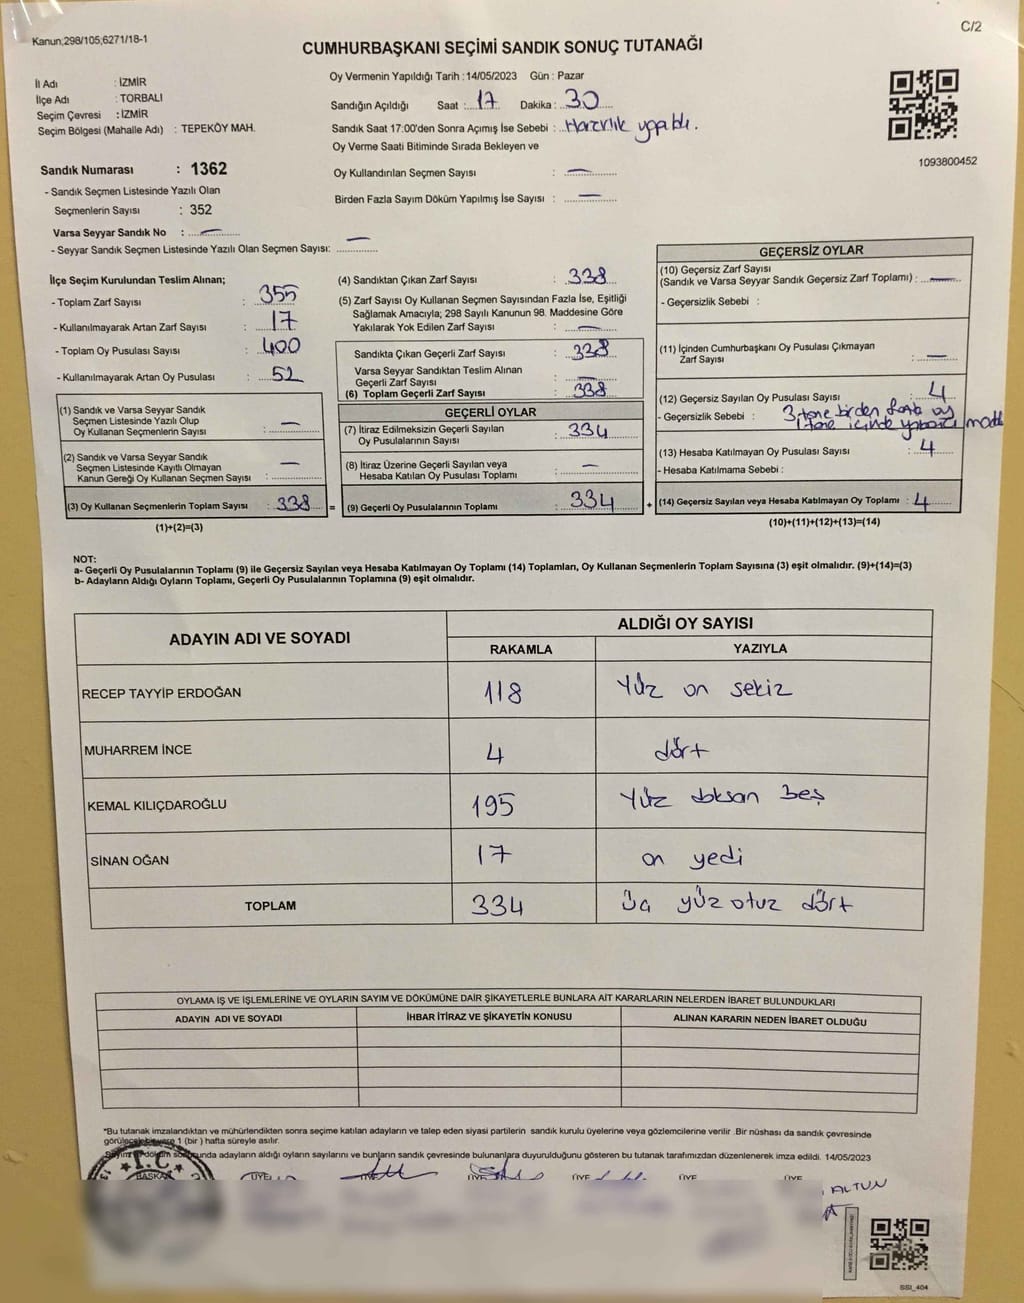 Kanun;298/105;6271/18-1
C/2
CUMHURBAŞKANI SEÇİMİ SANDIK SONUÇ TUTANAĞI
İl Adı : İZMİR
İlçe Adı : TORBALI
Seçim Çevresi : İZMİR
Seçim Bölgesi (Mahalle Adı) : TEPEKÖY MAH.
Oy Vermenin Yapıldığı Tarih : 14/05/2023 Gün : Pazar
Sandığın Açıldığı Saat : 17 Dakika : 30
Sandık Saat 17:00'den Sonra Açımış İse Sebebi : Hazırlık yapıldı.
Oy Verme Saati Bitiminde Sırada Bekleyen ve
Oy Kullandırılan Seçmen Sayısı : —
Birden Fazla Sayım Döküm Yapılmış İse Sayısı : —
1093800452
Sandık Numarası : 1362
- Sandık Seçmen Listesinde Yazılı Olan
Seçmenlerin Sayısı : 352
Varsa Seyyar Sandık No : —
- Seyyar Sandık Seçmen Listesinde Yazılı Olan Seçmen Sayısı: —
İlçe Seçim Kurulundan Teslim Alınan;
- Toplam Zarf Sayısı : 355
- Kullanılmayarak Artan Zarf Sayısı : 17
- Toplam Oy Pusulası Sayısı : 400
- Kullanılmayarak Artan Oy Pusulası : 52
(1) Sandık ve Varsa Seyyar Sandık
Seçmen Listesinde Yazılı Olup
Oy Kullanan Seçmenlerin Sayısı : —
(2) Sandık ve Varsa Seyyar Sandık
Seçmen Listesinde Kayıtlı Olmayan
Kanun Gereği Oy Kullanan Seçmen Sayısı : —
(3) Oy Kullanan Seçmenlerin Toplam Sayısı : 338
(1)+(2)=(3)
=
(4) Sandıktan Çıkan Zarf Sayısı : 338
(5) Zarf Sayısı Oy Kullanan Seçmen Sayısından Fazla İse, Eşitliği
Sağlamak Amacıyla; 298 Sayılı Kanunun 98. Maddesine Göre
Yakılarak Yok Edilen Zarf Sayısı : —
Sandıkta Çıkan Geçerli Zarf Sayısı : 338
Varsa Seyyar Sandıktan Teslim Alınan
Geçerli Zarf Sayısı : —
(6) Toplam Geçerli Zarf Sayısı : 338
GEÇERLİ OYLAR
(7) İtiraz Edilmeksizin Geçerli Sayılan
Oy Pusulalarının Sayısı : 334
(8) İtiraz Üzerine Geçerli Sayılan veya
Hesaba Katılan Oy Pusulası Toplamı : —
(9) Geçerli Oy Pusulalarının Toplamı : 334
+
GEÇERSİZ OYLAR
(10) Geçersiz Zarf Sayısı
(Sandık ve Varsa Seyyar Sandık Geçersiz Zarf Toplamı) : —
- Geçersizlik Sebebi :
(11) İçinden Cumhurbaşkanı Oy Pusulası Çıkmayan
Zarf Sayısı : —
(12) Geçersiz Sayılan Oy Pusulası Sayısı : 4
- Geçersizlik Sebebi : 3 tane birden fazla oy
1 tane içinde yabancı madde
(13) Hesaba Katılmayan Oy Pusulası Sayısı : 4
- Hesaba Katılmama Sebebi :
(14) Geçersiz Sayılan veya Hesaba Katılmayan Oy Toplamı : 4
(10)+(11)+(12)+(13)=(14)
NOT:
a- Geçerli Oy Pusulalarının Toplamı (9) ile Geçersiz Sayılan veya Hesaba Katılmayan Oy Toplamı (14) Toplamları, Oy Kullanan Seçmenlerin Toplam Sayısına (3) eşit olmalıdır. (9)+(14)=(3)
b- Adayların Aldığı Oyların Toplamı, Geçerli Oy Pusulalarının Toplamına (9) eşit olmalıdır.
ADAYIN ADI VE SOYADI
ALDIĞI OY SAYISI
RAKAMLA YAZIYLA
RECEP TAYYİP ERDOĞAN 118 Yüz on sekiz
MUHARREM İNCE 4 dört
KEMAL KILIÇDAROĞLU 195 Yüz doksan beş
SİNAN OĞAN 17 on yedi
TOPLAM 334 üç yüz otuz dört
OYLAMA İŞ VE İŞLEMLERİNE VE OYLARIN SAYIM VE DÖKÜMÜNE DAİR ŞİKAYETLERLE BUNLARA AİT KARARLARIN NELERDEN İBARET BULUNDUKLARI
ADAYIN ADI VE SOYADI İHBAR İTİRAZ VE ŞİKAYETİN KONUSU ALINAN KARARIN NEDEN İBARET OLDUĞU
*Bu tutanak imzalandıktan ve mühürlendikten sonra seçime katılan adayların ve talep eden siyasi partilerin sandık kurulu üyelerine veya gözlemcilerine verilir .Bir nüshası da sandık çevresinde
görülecek bir yere 1 (bir ) hafta süreyle asılır.
Sayım ve döküm sonucunda adayların aldığı oyların sayılarını ve bunların sandık çevresinde bulunanlara duyurulduğunu gösteren bu tutanak tarafımızdan düzenlenerek imza edildi. 14/05/2023
T.C
BAŞKAN ÜYE ÜYE ÜYE ÜYE ÜYE ÜYE
ALTUN
SSI_404